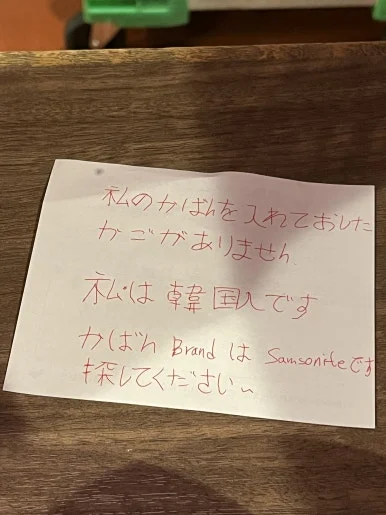 私のかばんを入れておした
かごがありません
私は韓国人です
かばん Brand は Samsoniteです
探してください~